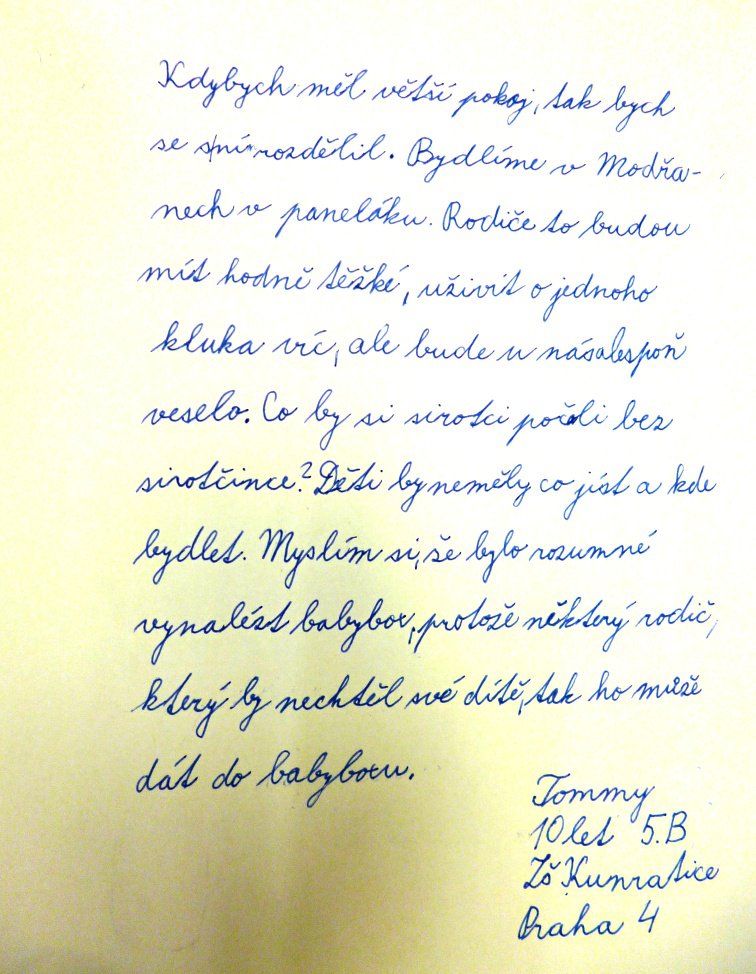 Kdybych měl větší pokoj, tak bych
se s ní rozdělil. Bydlíme v Modřa-
nech v paneláku. Rodiče to budou
mít hodně těžké, uživit o jednoho
kluka víc, ale bude u nás alespoň
veselo. Co by si sirotci počali bez
sirotčince? Děti by neměly co jíst a kde
bydlet. Myslím si, že bylo rozumné
vynalézt babybox, protože některý rodič,
který by nechtěl své dítě, tak ho může
dát do babyboxu.
Tommy
10 let 5.B
ZŠ Kunratice
Praha 4